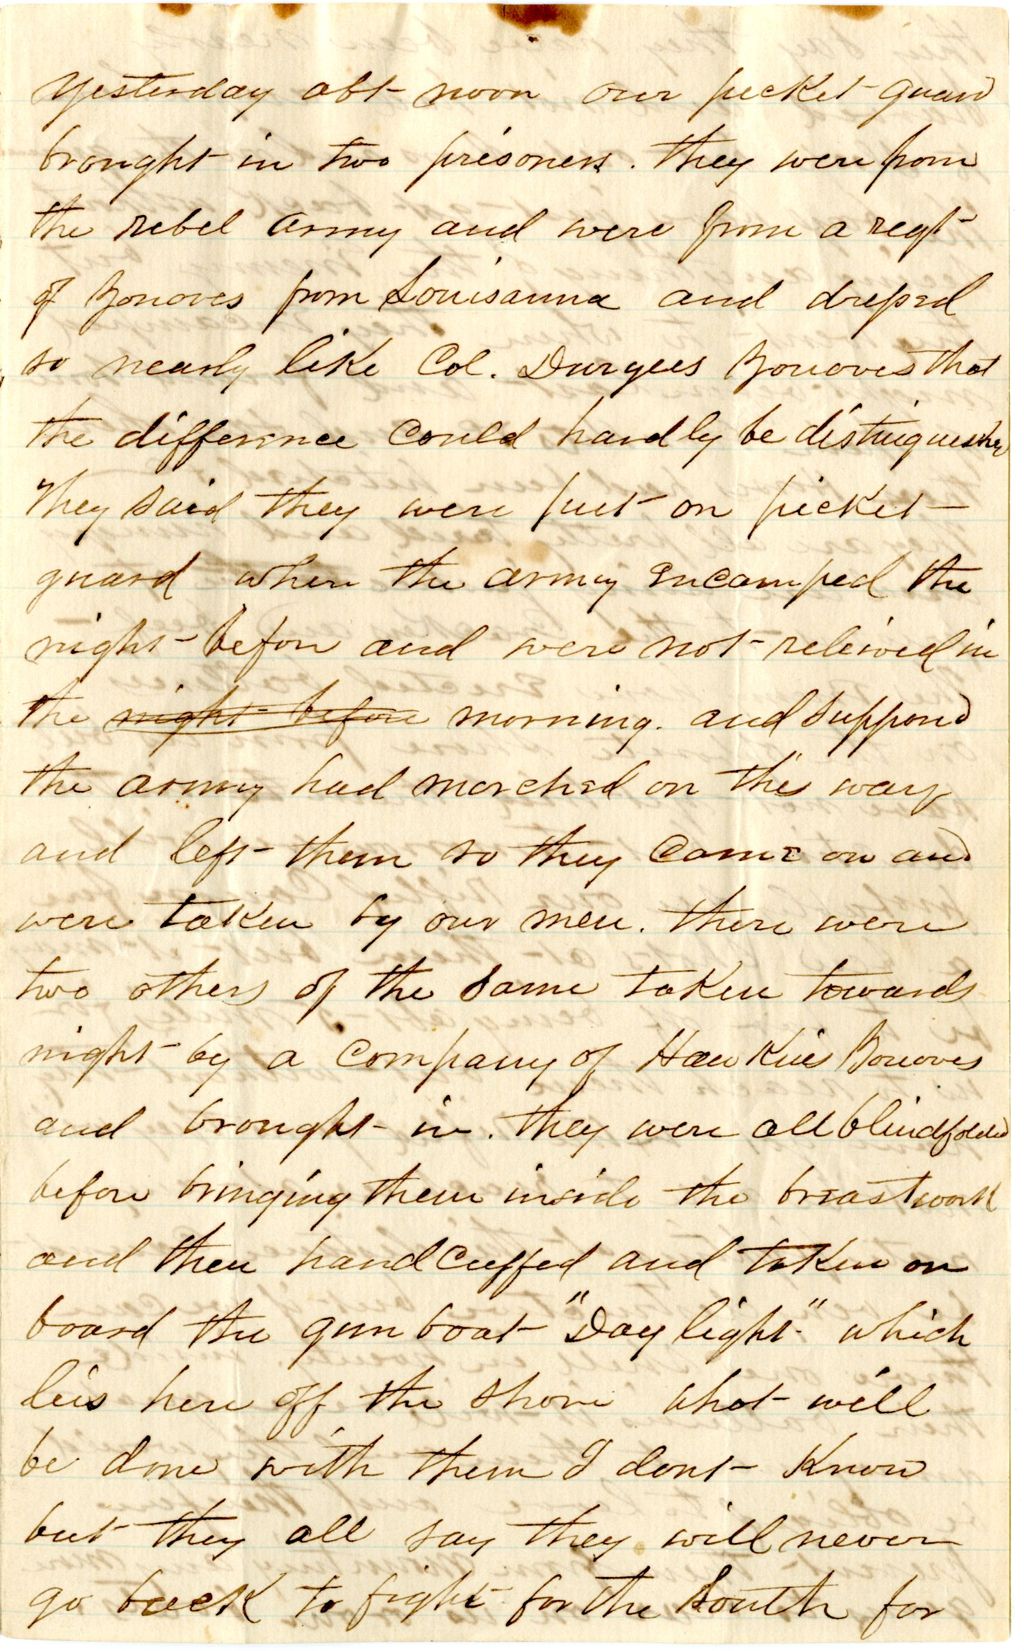 Yesterday abt noon our picket guard
brought in two prisoners. they were from
the rebel army and were from a regt
of Zonoves from Louisanna and dressed
so nearly like Col. Duryees Zonoves that
the difference could hardly be distinguished
They said they were put on picket
guard when the army Encamped the
night before and were not releived in
the night before morning. and supposed
the army had marched on this way
and left them so they came on and
were taken by our men. there were
two others of the same taken towards
night by a company of Hawkins Zonoves
and brought in. they were all blindfolded
before bringing them inside the breastwork
and then handcuffed and taken on
board the gun boat "Day light" which
leis here off the shore what will
be done with them I dont Know
but they all say they will never
go back to fight for the South for